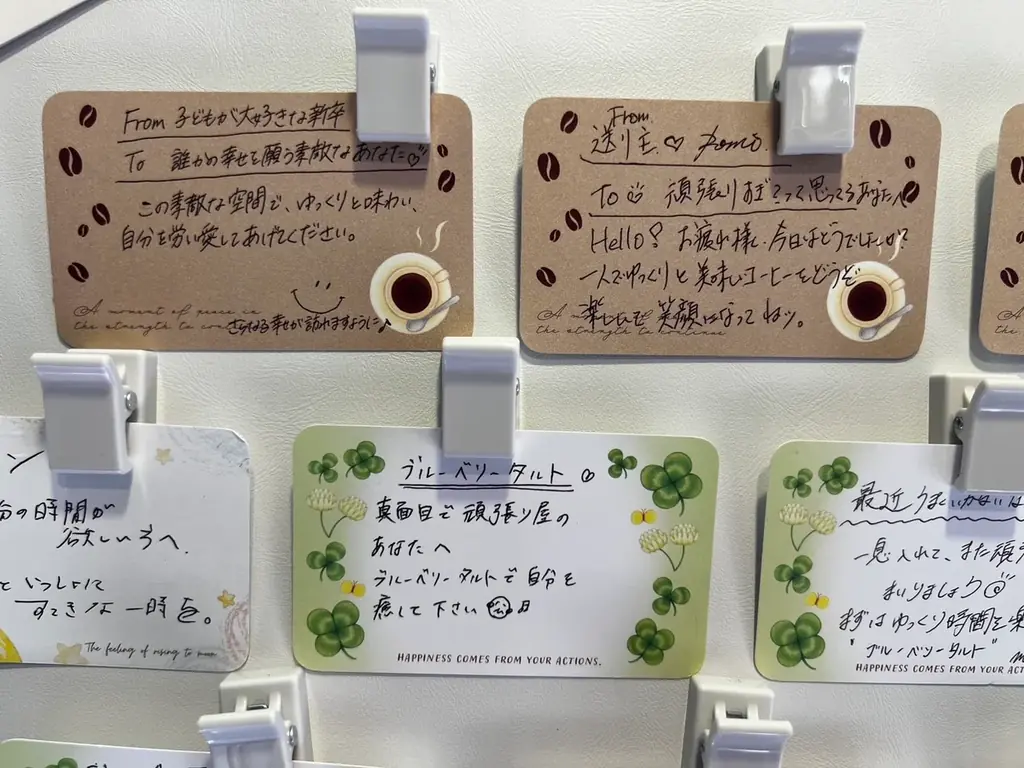 From 子どもが大好きな新卒
To 誰かの幸せを願う素敵なあなた♡
この素敵な空間で、ゆっくりと味わい、
自分を労い愛してあげてください。
A moment of peace is
the strength to
さらなる幸せが訪れますように♪
From.
送り主.♡
To 頑張りすぎ?って思ってるあなたへ
Hello! お疲れ様です、今日はどうでしたか?
一人でゆっくりと美味しいコーヒーをどうぞ
楽しんで笑顔になってねッ。
the strength to continue
ン
分の時間が
欲しい方へ.
といっしょに
すてきな一時を。
The feeling of rising to
ブルーベリータルト
真面目で頑張り屋の
あなたへ
ブルーベリータルトで自分を
癒して下さい
HAPPINESS COMES FROM YOUR ACTIONS.
最近うまくいかない
一息入れて、また頑
まいりましょう
まずはゆっくり時間を楽
"ブルーベリータルト"
HAPPINESS COMES FROM YOUR ACT